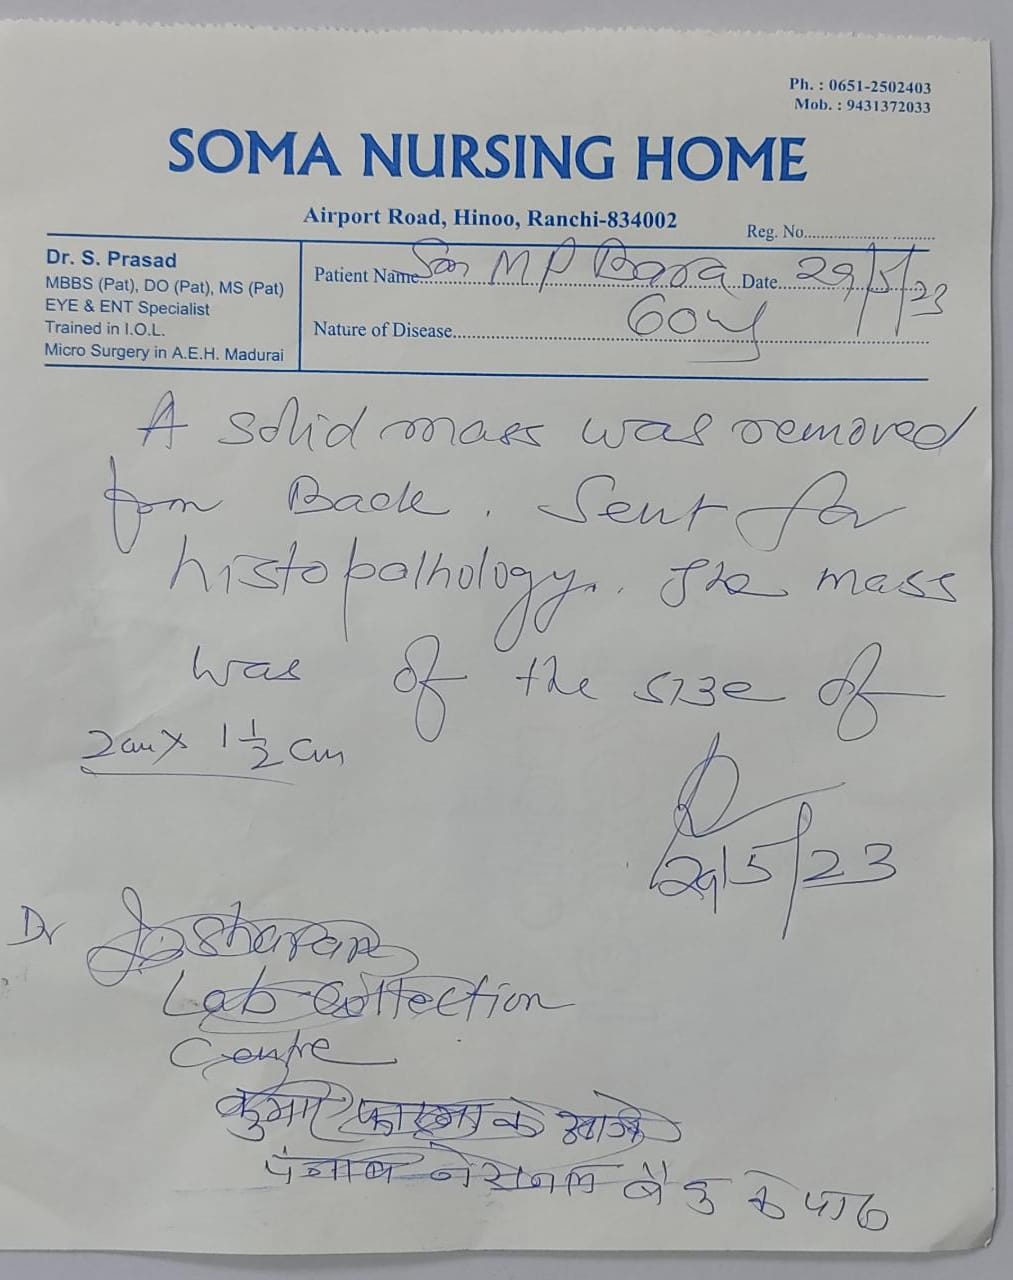 Ph. : 0651-2502403
Mob. : 9431372033
SOMA NURSING HOME
Airport Road, Hinoo, Ranchi-834002
Reg. No.
Dr. S. Prasad
MBBS (Pat), DO (Pat), MS (Pat)
EYE & ENT Specialist
Trained in I.O.L.
Micro Surgery in A.E.H. Madurai
Patient Name M P Date 29/5/23
Nature of Disease 60y
A solid mass was removed
from Back. Sent for
histopathology. The mass
was of the size of
2cm x 1 1/2 cm
29/5/23
Dr
Lab Collection
Centre
के
पंजाब नेशनल बैंक के पास